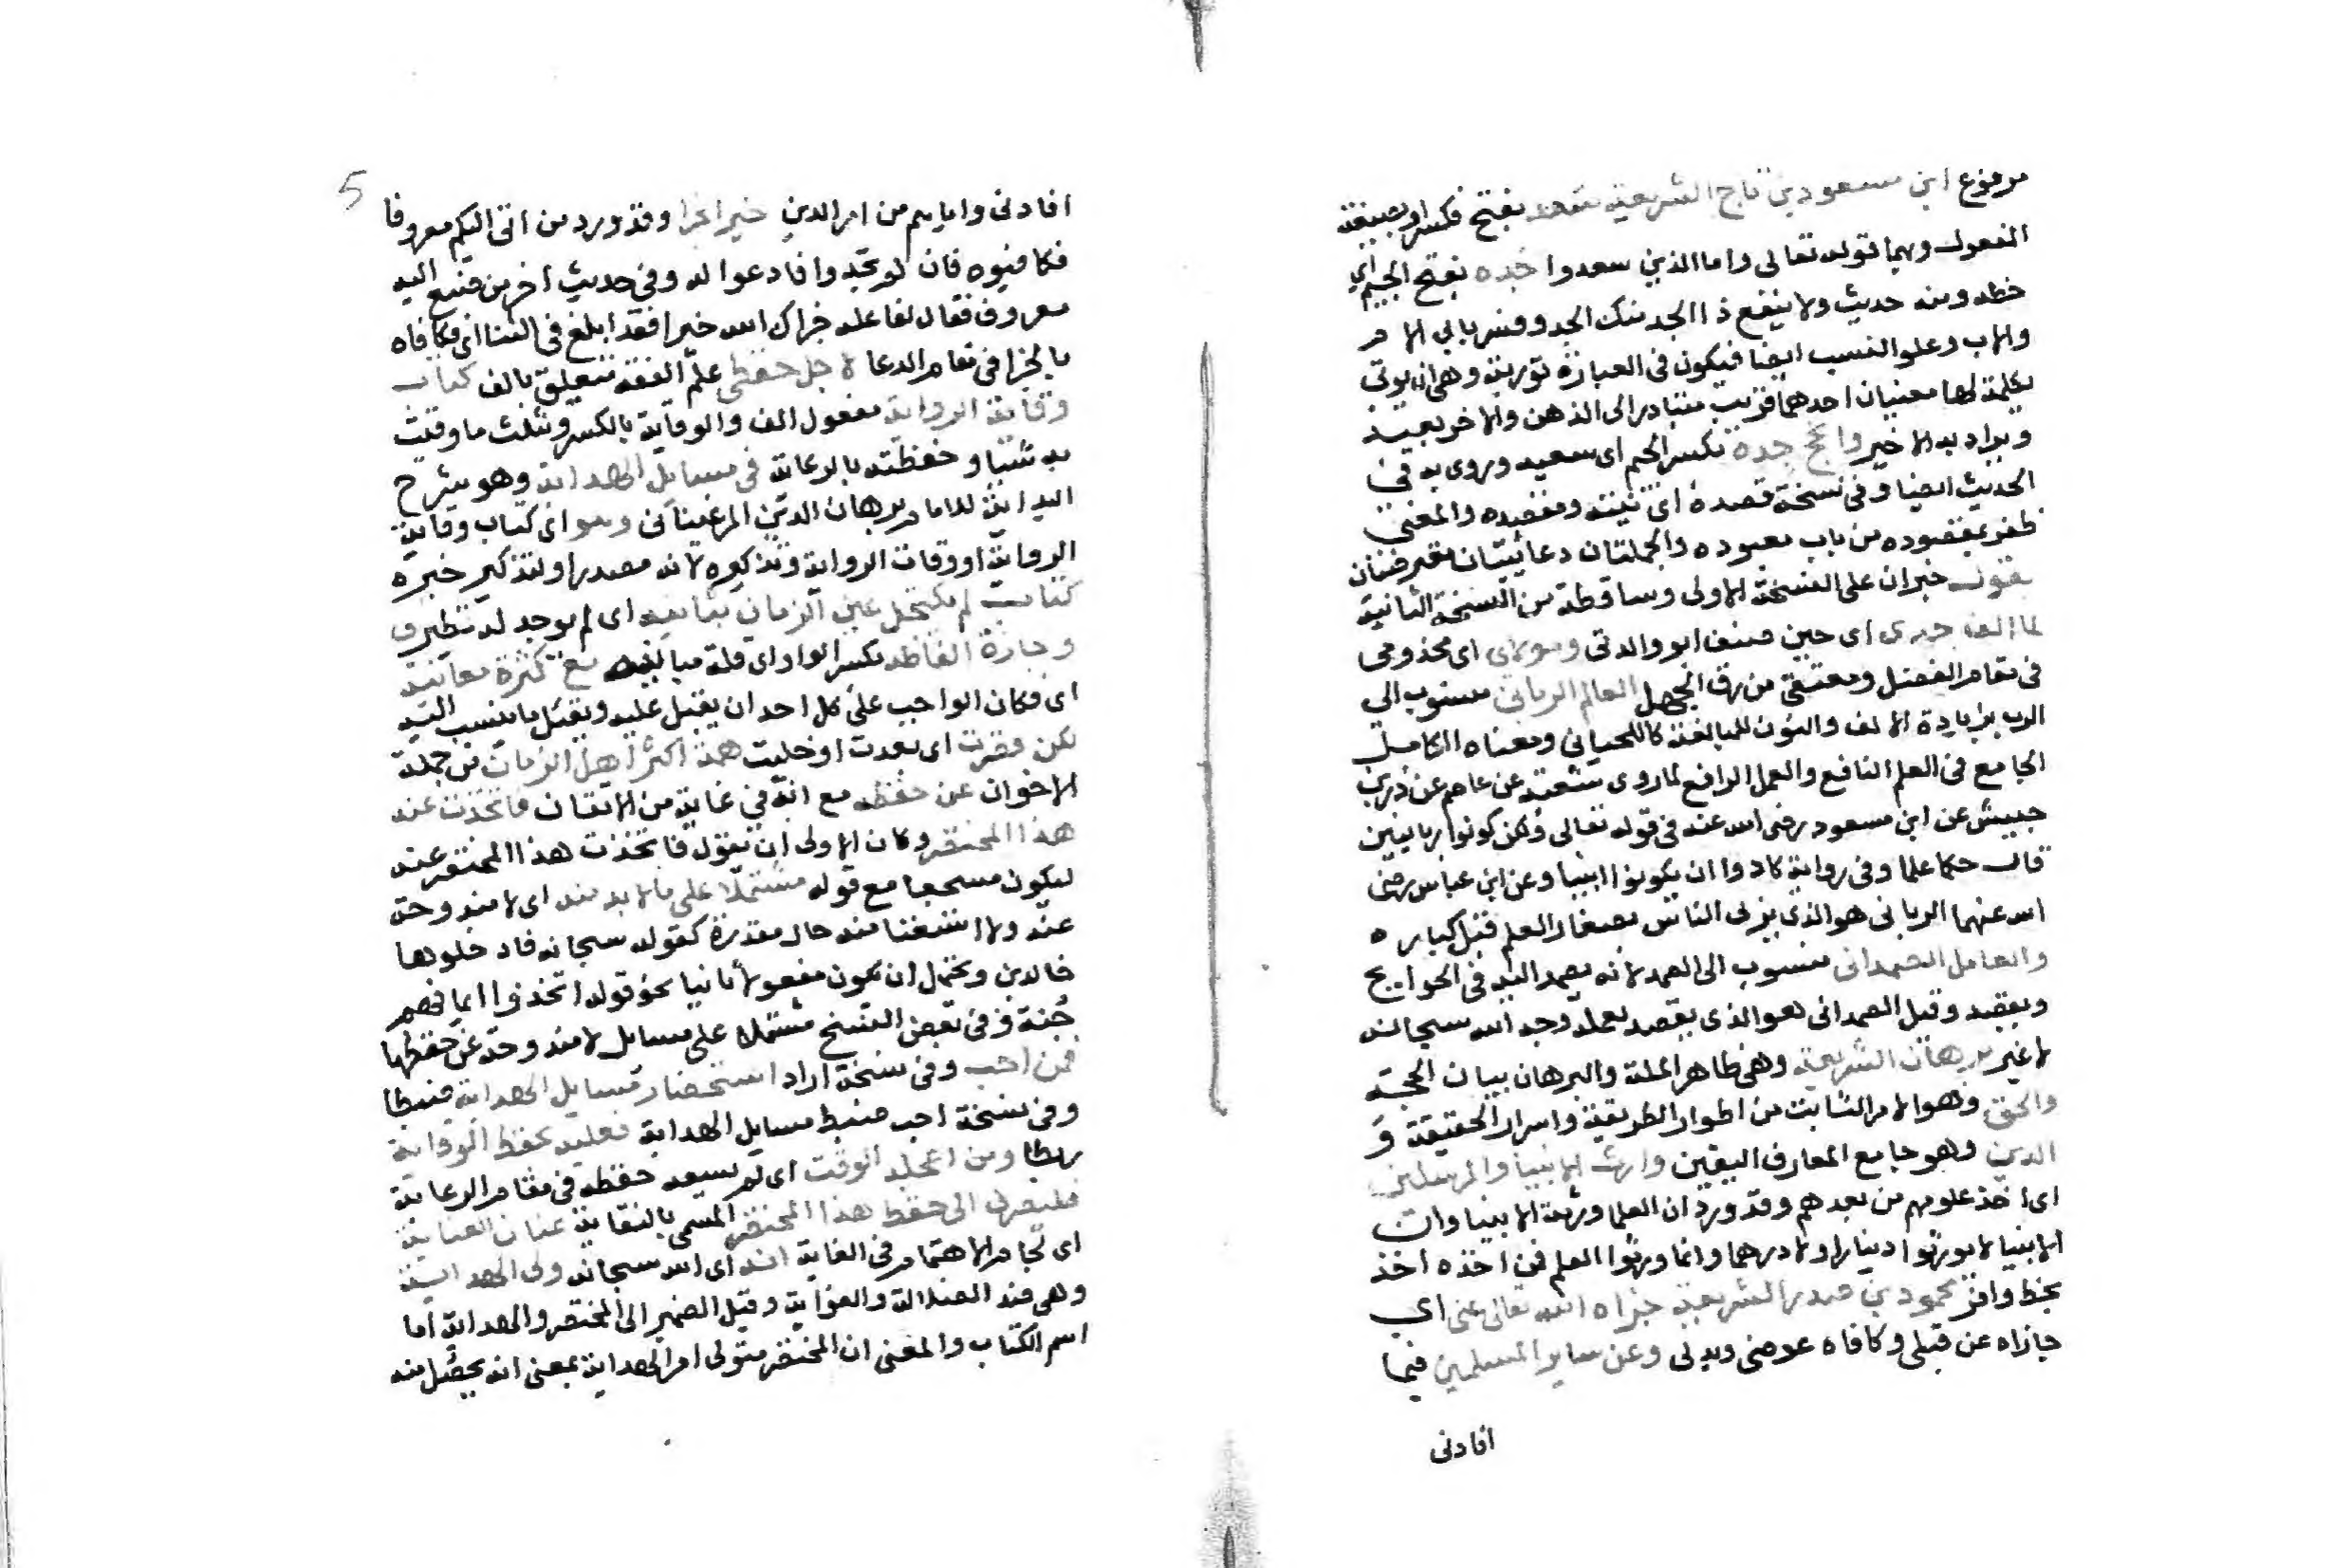 مرفوع ابن مسعود بن تاج الشريعة سعد بفتح فكسر او بصيغة
المفعول وبهما قوله تعالى واما الذين سعدوا جده بفتح الجيم اي
حظه ومنه حديث ولا ينفع ذا الجد منك الجد وفسر بابي الام
والاب وعلو النسب ايضا فيكون في العبارة تورية وهي ان يوتى
بكلمة لها معنيان احدهما قريب متبادر الى الذهن والاخر بعيد
ويراد به الاخير وانجح جده بكسر الجيم اي سعيه وروى به في
الحديث ايضا وفي نسخة قصده اي نيته ومقصده والمعنى
ظفر بمقصوده من باب معبوده والجملتان دعائيتان معترضتان
يقول خبران على النسخة الاولى وساقطة من النسخة الثانية
لما الف جدي اي حين صنف ابو والدتي ومولاي اي مخدومي
في مقام الفضل ومعتقي من رق الجهل العالم الرباني منسوب الى
الرب بزيادة الالف والنون للمبالغة كاللحياني ومعناه الكامل
الجامع في العلم النافع والعمل الرافع لما روى شعبة عن عاصم عن ذر بن
حبيش عن ابن مسعود رضى الله عنه في قوله تعالى ولكن كونوا ربانيين
قال حكما علما وفي رواية كادوا ان يكونوا انبيا وعن ابن عباس رضى
الله عنهما الرباني هو الذي يربى الناس بصغار العلم قبل كباره
والعامل الصمداني منسوب الى الصمد لانه يصمد اليه في الحوايج
ويقصد وقيل الصمداني هو الذي يقصد بعمله وجه الله سبحانه
لا غير برهان الشريعة وهي ظاهر الملة والبرهان بيان الحجة
والحق وهو الامر الثابت من اطوار الطريقة واسرار الحقيقة و
الدين وهو جامع المعارف اليقين وارث الانبيا والمرسلين
اي اخذ علومهم من بعدهم وقد ورد ان العلما ورثة الانبيا وان
الانبيا لا يورثوا دينارا ولا درهما وانما ورثوا العلم فمن اخذه اخذ
بحظ وافر محمود بن صدر الشريعة جزاه الله تعالى عنى اي
جازاه عن قبلى وكافاه عوضى وبدلى وعن ساير المسلمين فيما
افادنى
5
افادنى واياهم من امر الدين خير الجزا وقد ورد من اتى اليكم معروفا
فكافيوه فان لم تجدوا فادعوا له وفي حديث اخر من صنع اليه
معروف فقال لفاعله جزاك الله خيرا فقد ابلغ في الثنا اي مكافاه
بالجزا في مقام الدعا لاجل حفظى علم الفقه متعلق بالف كتاب
وقاية الرواية مفعول الف والوقاية بالكسر وتثلث ما وقيت
به شيا وحفظته بالرعاية في مسايل الهداية وهو شرح
البداية للامام برهان الدين المرغيناني وهو اي كتاب وقاية
الرواية او وقات الرواية وتذكيره لانه مصدر او لتذكير خبره
كتاب لم تكتحل عين الزمان بثانيه اي لم يوجد له نظير في
وجازة الفاظه بكسر الواو اي قلة مبانيه مع كثرة معانيه
اي فكان الواجب على كل احد ان يقبل عليه ويقبل ما ينسب اليه
لكن قصرت اي بعدت او خليت همة اكثر اهل الزمان من جملة
الاخوان عن حفظه مع انه في غاية من الاتقان فاتخذت عنه
هذا المختصر وكان الاولى ان تقول فاتخذت هذا المختصر عنه
ليكون مسجعا مع قوله مشتملا على ما لا بد منه اي لا مندوحة
عنه ولا استغنا منه حال مقدرة كقوله سبحانه فادخلوها
خالدين ويحتمل ان يكون مفعولا ثانيا نحو قوله اتخذوا ايمانهم
جنة وفي بعض النسخ مشتملا على مسايل لا مندوحة عن حفظها
فمن احب وفي نسخة اراد استحضار مسايل الهداية ضبطا
وفي نسخة احب ضبط مسايل الهداية فعليه بحفظ الوقاية
ربطا ومن اعجله الوقت اي لم يسعه حفظه في مقام الرعاية
فليصرف الى حفظ هذا المختصر المسمى بالنقاية عنان العناية
اي لجام الاهتمام في الغاية انه اي الله سبحانه ولى الهداية
وهي ضد الضلالة والغواية وقيل الضمير الى المختصر والهداية اما
اسم الكتاب والمعنى ان المختصر متولى امر الهداية بمعنى انه يحصل منه